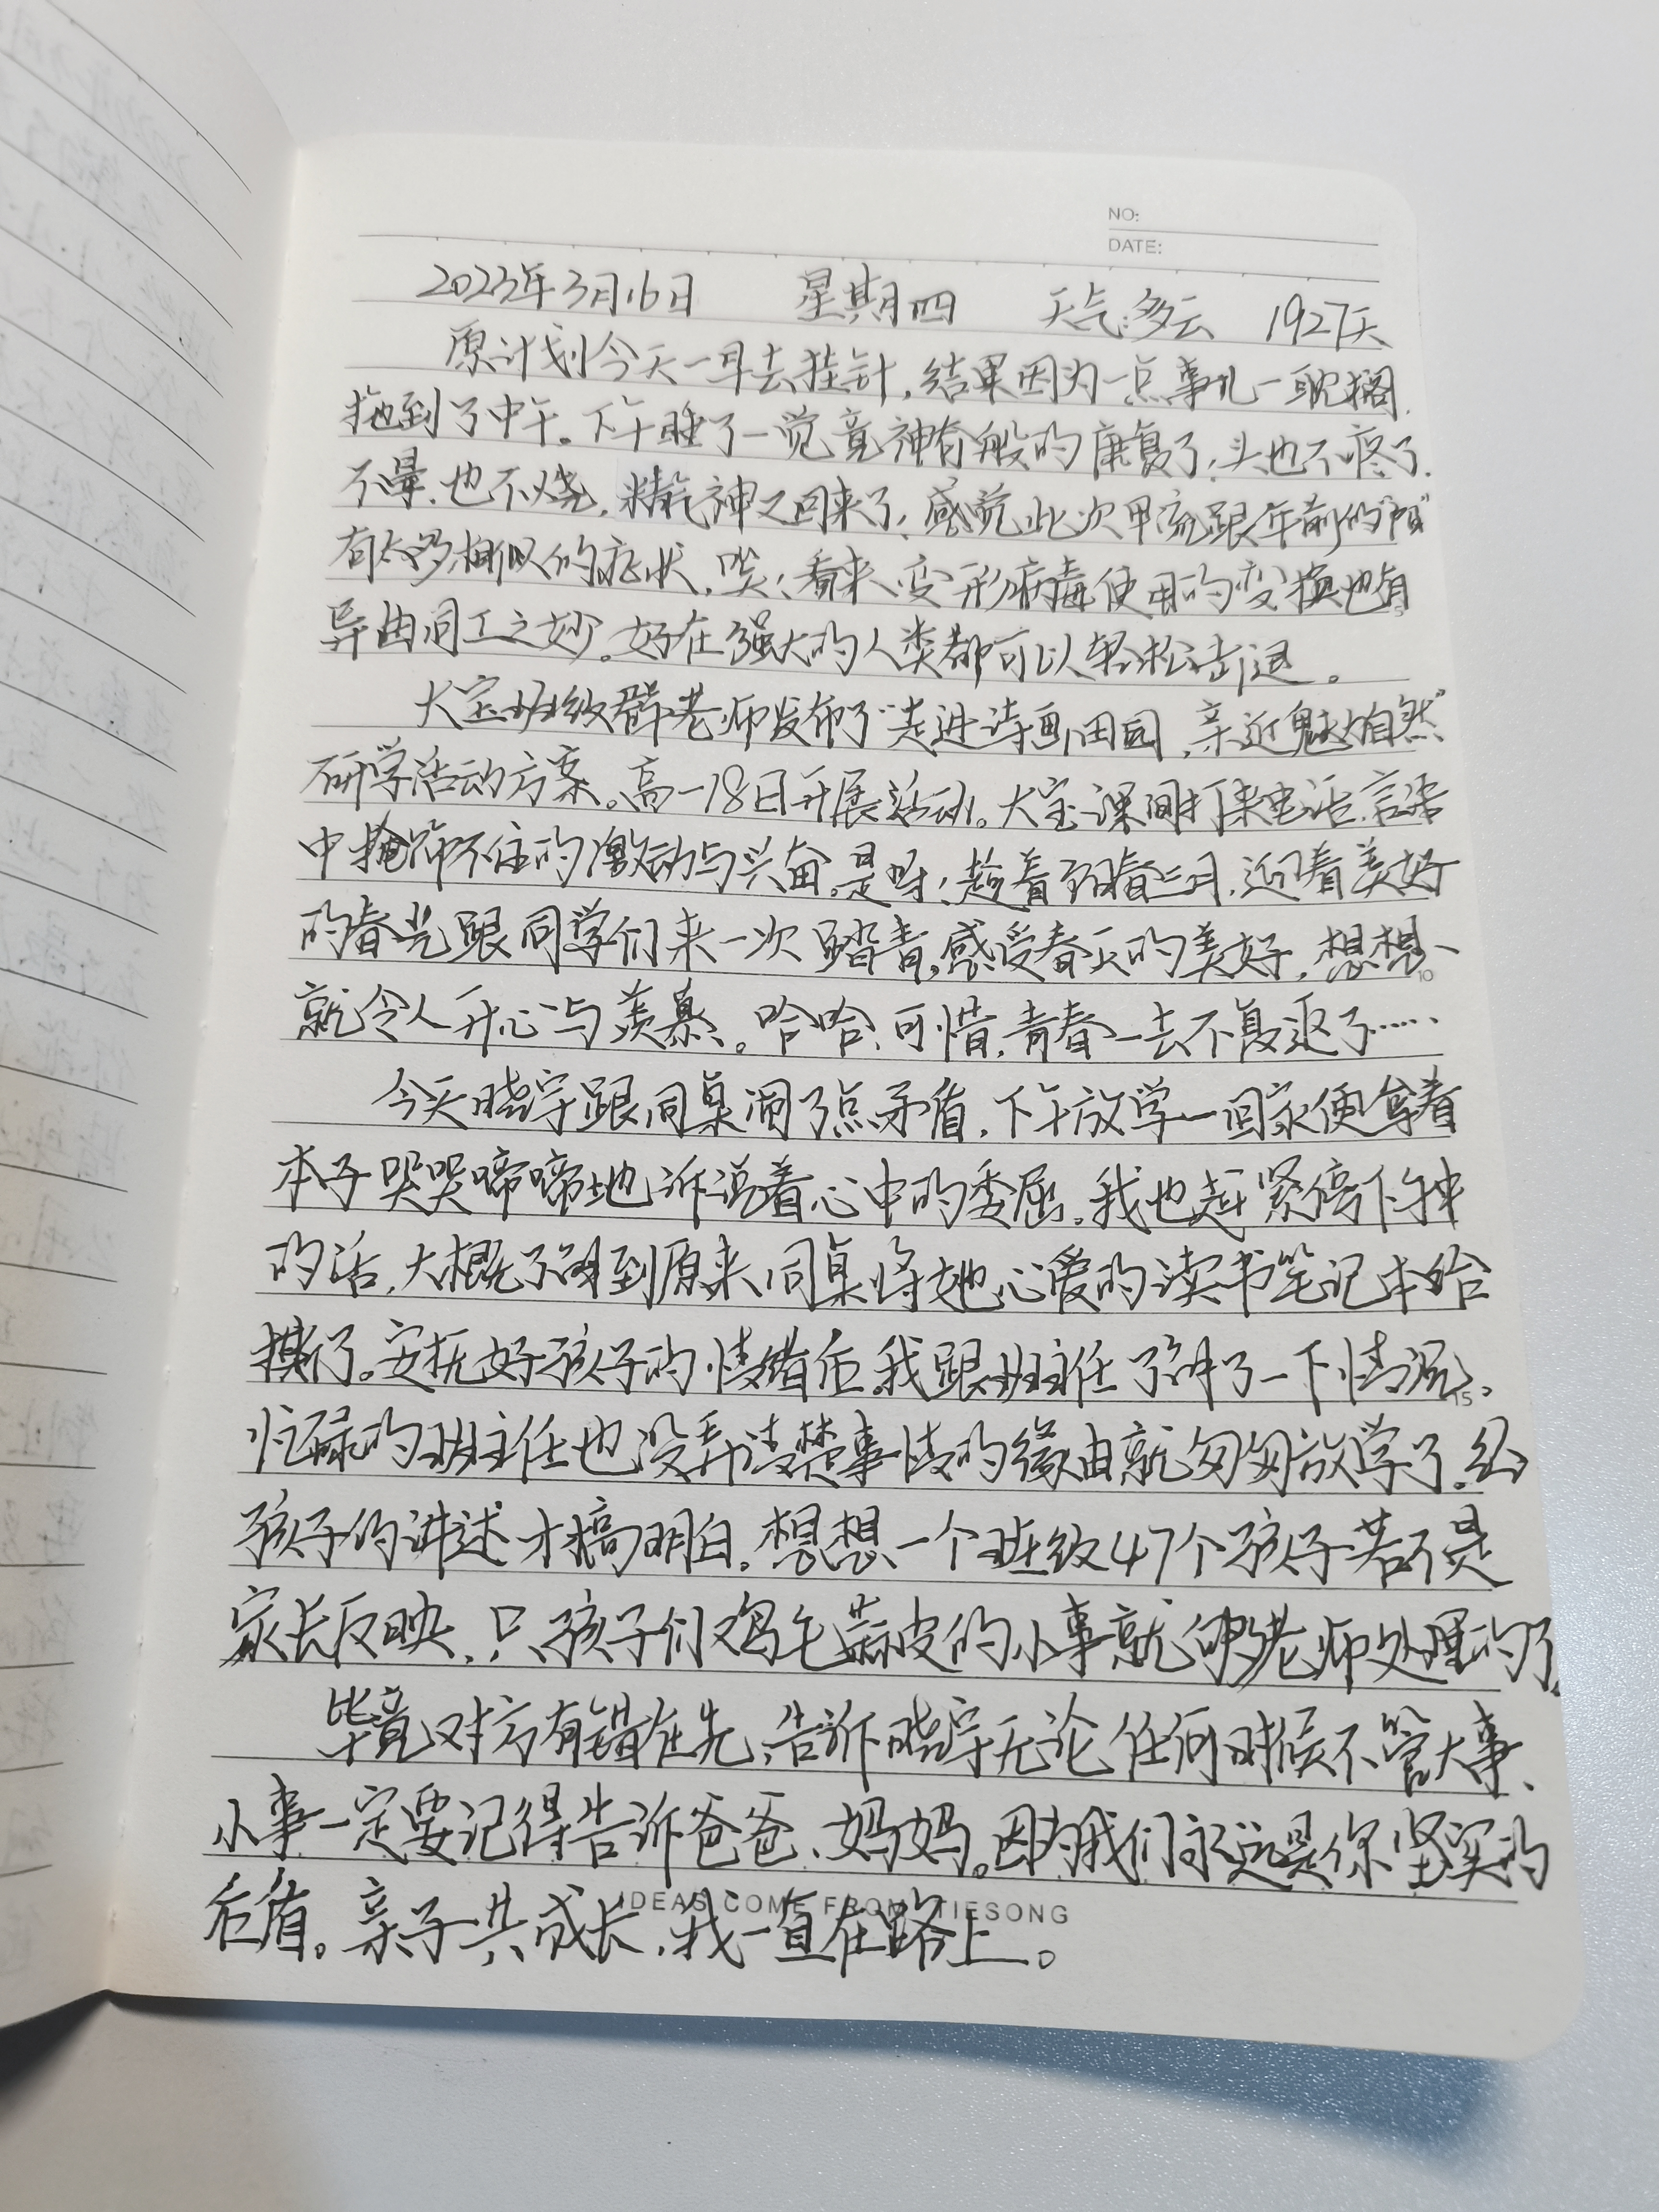 NO:
DATE:
2023年3月16日 星期四 天气:多云 1927天
原计划今天一早去挂针，结果因为一点事儿一耽搁，
拖到了中午。下午睡了一觉竟神奇般的康复了，头也不疼了，
不晕，也不烧，精气神又回来了，感觉此次甲流跟年前的"阳"
有太多相似的症状，唉！看来变形病毒使用的变换也有
异曲同工之妙。好在强大的人类都可以轻松击退。
大宝班级群老师发布了"走进诗画田园，亲近魅力自然"
研学活动方案。高一18日开展活动。大宝课间打来电话，言语
中掩饰不住的激动与兴奋。是呀！趁着阳春三月，迎着美好
的春光跟同学们来一次踏青，感受春天的美好，想想、
就令人开心与羡慕。哈哈，可惜，青春一去不复返了……
今天晓宇跟同桌闹了点矛盾，下午放学一回家便拿着
本子哭哭啼啼地诉说着心中的委屈。我也赶紧停下手中
的活，大概了解到原来同桌将她心爱的读书笔记本给
撕了。安抚好孩子的情绪后，我跟班主任了解了一下情况。
忙碌的班主任也没弄清楚事情的缘由就匆匆放学了。经
孩子的讲述才搞明白。想想一个班级47个孩子若不是
家长反映，只孩子们鸡毛蒜皮的小事就够老师处理的了。
毕竟对方有错在先，告诉晓宇无论任何时候不管大事、
小事一定要记得告诉爸爸、妈妈。因为我们永远是你坚实的
后盾。亲子共成长，我一直在路上。
IDEAS COME FROM TIESONG